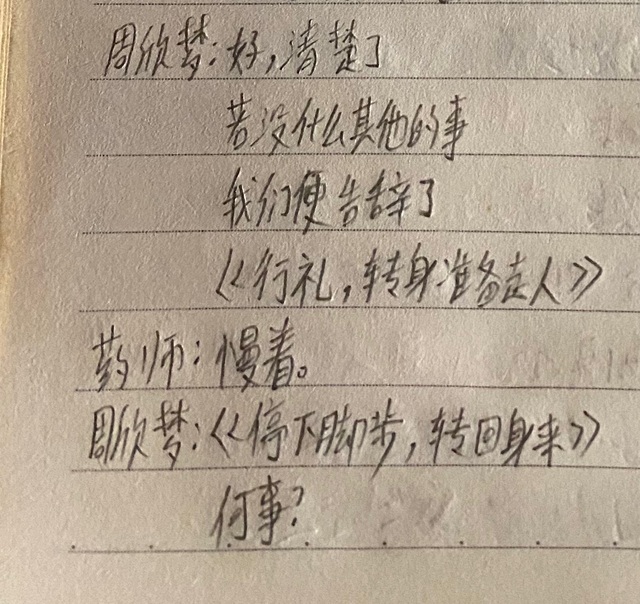 周欣梦:好,清楚了
若没什么其他的事
我们便告辞了
《行礼,转身准备走人》
药师:慢着。
周欣梦:《停下脚步,转回身来》
何事?